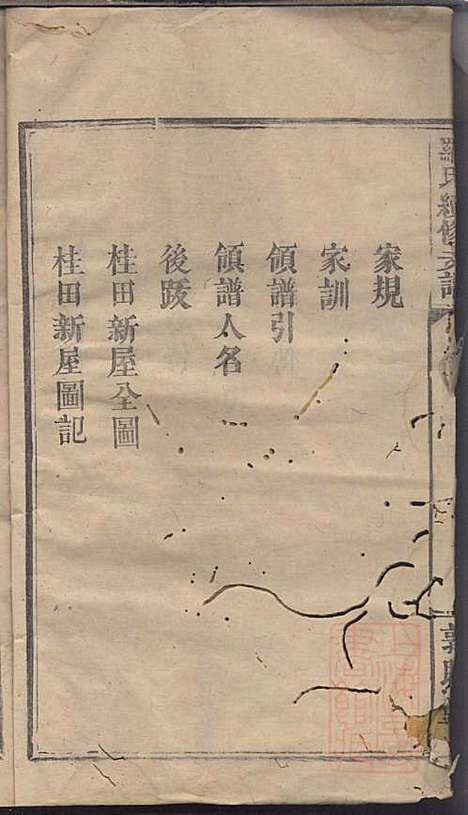 羅氏續修支譜
家規
家訓
領譜引
領譜人名
後跋
桂田新屋全圖
桂田新屋圖記